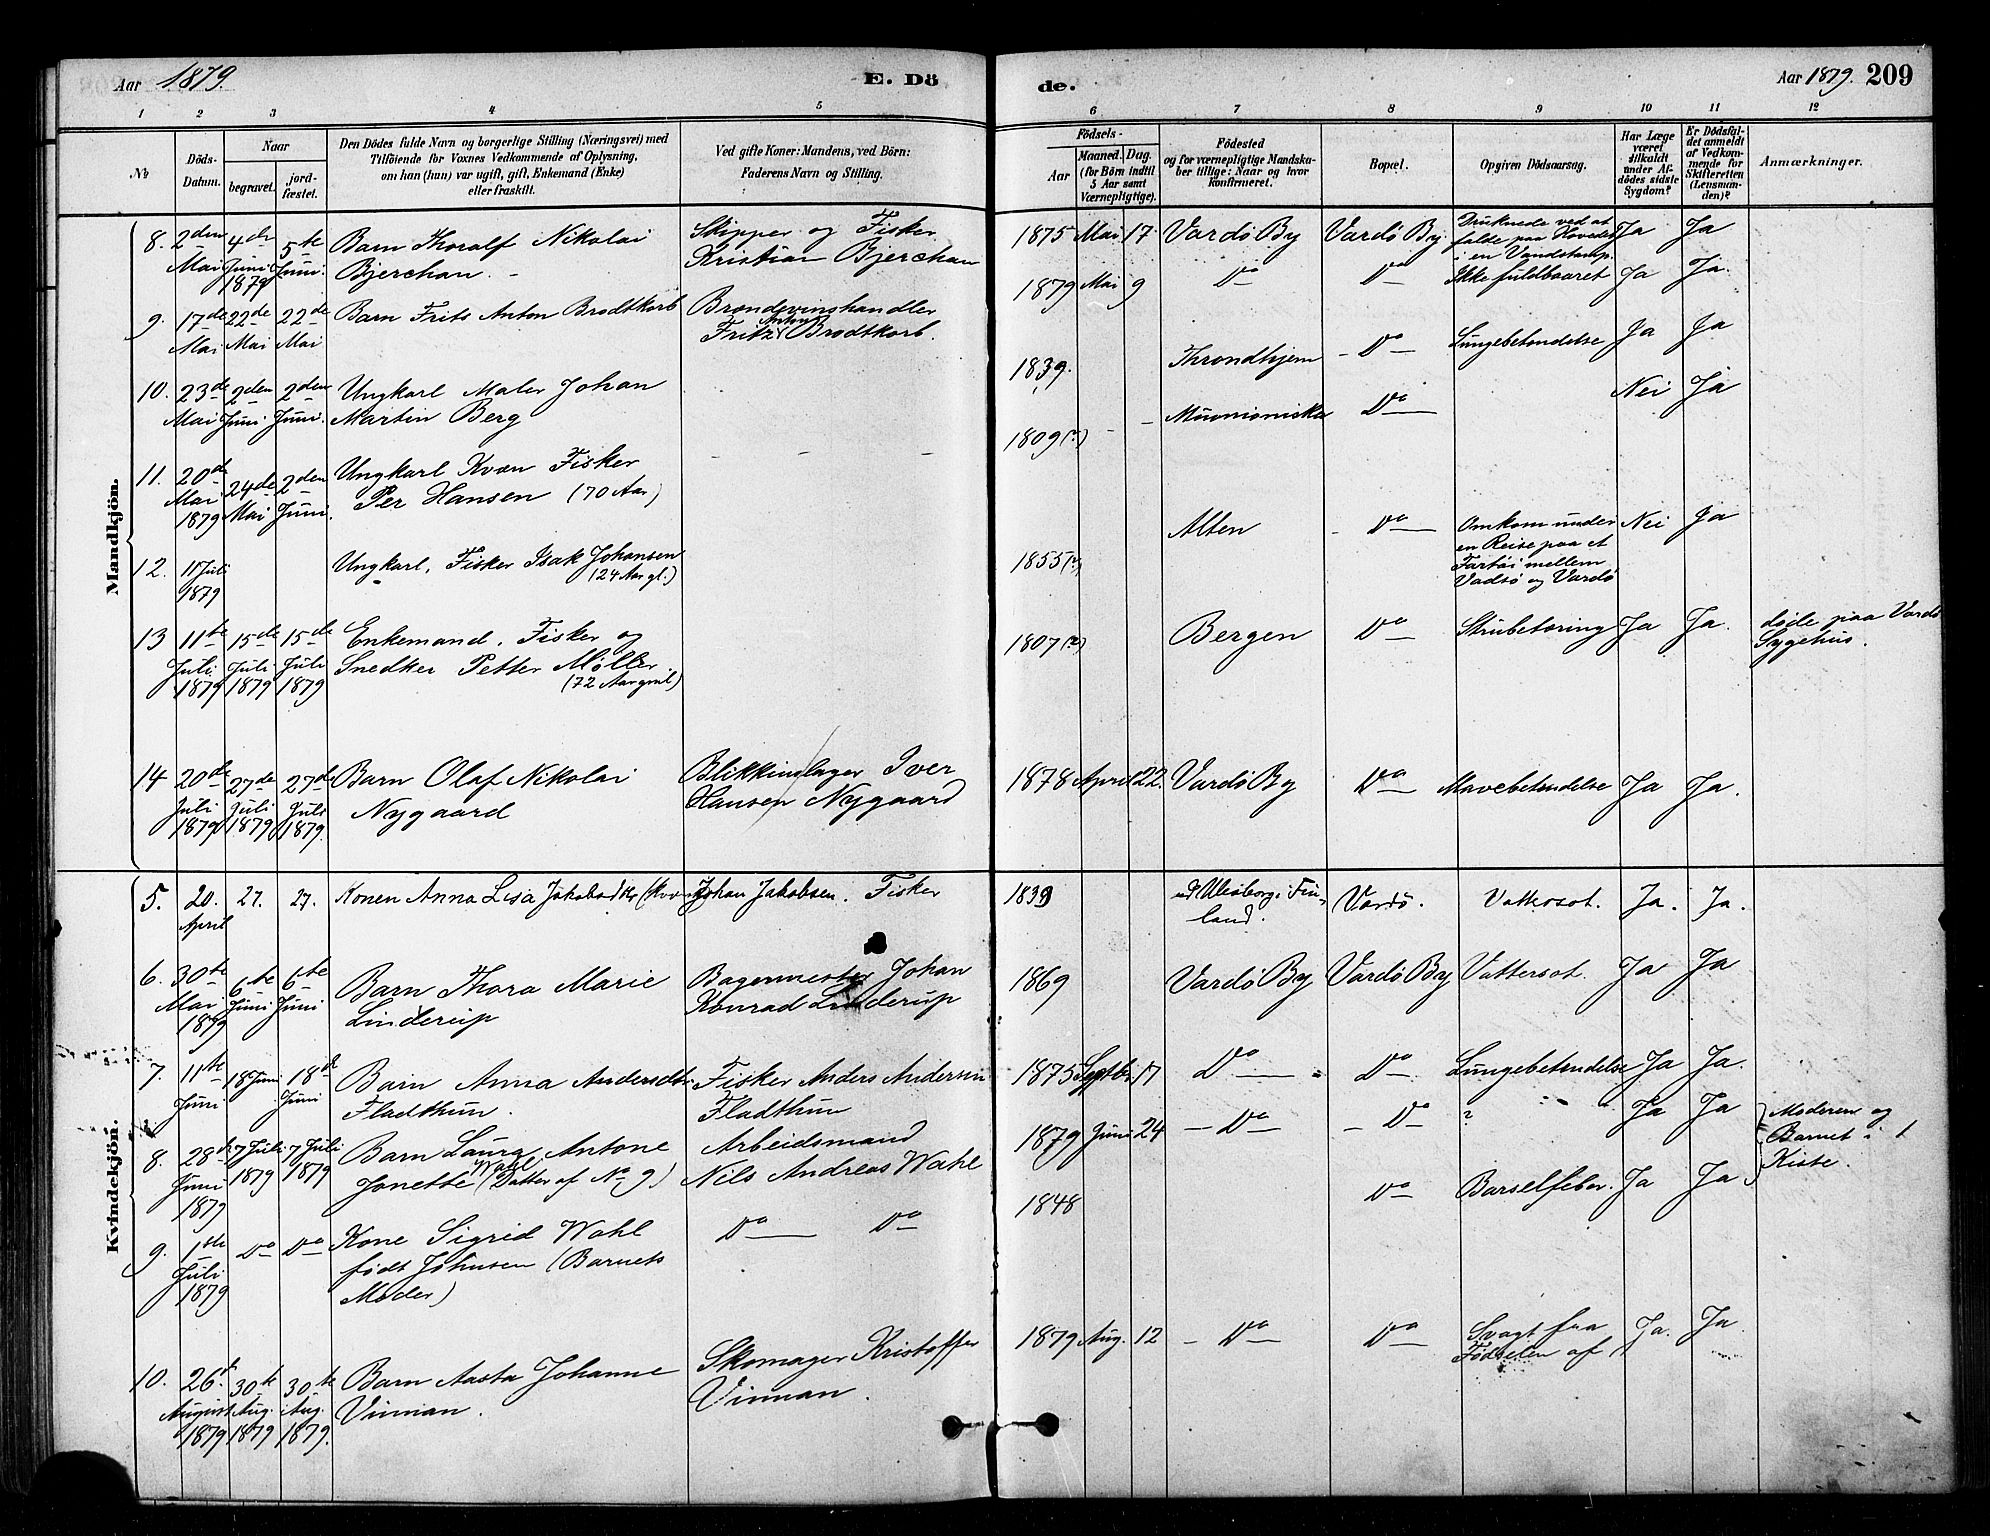 Aar 1879. E. Dö
de. Aar 1879. 209
1 2 3 4 5
6 7 8 9 10 11 12
No
Döds-
Datum.
Naar
begravet.
jord-
fæstet.
Den Dödes fulde Navn og borgerlige Stilling (Næringsvei) med
Tilföiende for Voxnes Vedkommende af Oplysning,
om han (hun) var ugift, gift, Enkemand (Enke)
eller fraskilt.
Ved gifte Koner: Mandens, ved Börn:
Faderens Navn og Stilling.
Födsels-
Aar
Maaned. Dag.
(for Börn indtil
5 Aar samt
Værnepligtige).
Födested
og for værnepligtige Mandska-
ber tillige: Naar og hvor
konfirmeret.
Bopæl.
Opgiven Dödsaarsag.
Har Læge
været
tilkaldt
under Af-
dödes sidste
Sygdom?
Er Dödsfal-
det anmeldt
af Vedkom-
mende for
Skifteretten
(Lensman-
den)?
Anmærkninger.
Mandkjön.
8. 2den Mai 4de Juni 1879 5te Juni.
Barn Thoralf Nikolai
Bjerchan.
Skipper og Fisker
Kristian Bjerchan
1875 Mai 17. Vardö By Vardö By.
Druknede ved at
falde paa Hovedet
i en Vandstamp.
Ja Ja
9. 17de Mai 22de Mai 22de Mai
Barn Frits Anton Brodtkorb
Brændevinshandler
Fritz Anton Brodtkorb.
1879 Mai 9 Do Do Ikke fuldbaaret Ja Ja.
10. 23de Mai 2den Juni 2den Juni.
Ungkarl Maler Johan
Martin Berg
1839. Throndhjem Do Lungebetændelse Ja Ja
11. 20de Mai 1879 24de Mai 2den Juni.
Ungkarl Kvæn Fisker
Per Hansen (70 Aar)
1809(?) Muonioniska Do Nei Ja
12. 11 Juli 1879
Ungkarl, Fisker Isak Johansen
(24 Aar gl.)
1855(?) Alten Do
Omkom under
en Reise paa et
Fartöi mellem
Vadsö og Vardö
Nei Ja
13 11te Juli 1879 15de Juli 1879 15de Juli 1879
Enkemand. Fisker og
Snedker Petter Møller
(72 Aar gml)
1807(?) Bergen Do Strubetæring Ja Ja.
døde paa Vardö
Sygehus.
14 20de Juli 1879 27de Juli 1879 27de Juli 1879.
Barn Olaf Nikolai
Nygaard
Blikkenslager Iver
Hansen Nygaard
1878 April 22. Vardö By Do Mavebetændelse Ja Ja.
Kvindekjön.
5. 20. April 27. 27.
Konen Anna Lisa Jakobsdtr
Johan Jakobsen. Fisker
1839 Uleåborg i Fin-
land. Vardö. Vattersot. Ja. Ja.
6. 30te Mai 1879 6te Juni 6te Juni
Barn Thora Marie
Linderup
Bagermester Johan
Konrad Linderup
1869 Vardö By Vardö By Vattersot. Ja Ja
7. 11te Juni 18 Juni 18de Juni
Barn Anna Andersdtr.
Fladthun.
Fisker Anders Andersen
Fladthun
1875 Septbr. 17 Do Do Lungebetændelse Ja Ja.
8. 28de Juni 1879 7 Juli 1879 7 Juli 1879
Barn Laura Antone
Jonette Wahl (Datter af No 9)
Arbeidsmand
Nils Andreas Wahl
1879 Juni 24 Do Do ? Ja Ja
Moderen og
Barnet i 1
Kiste.
9. 1ste Juli 1879 Do Do
Kone Sigrid Wahl
født Johnsen (Barnets
Moder)
Do Do
1848 Do Barselfeber. Ja Ja
10. 26de August 1879 30te Aug. 1879 30te Aug. 1879.
Barn Aasta Johanne
Vinman.
Skomager Kristoffer
Vinman.
1879 Aug. 12 Do Do
Svagt fra
Fødselen af
Ja. Ja